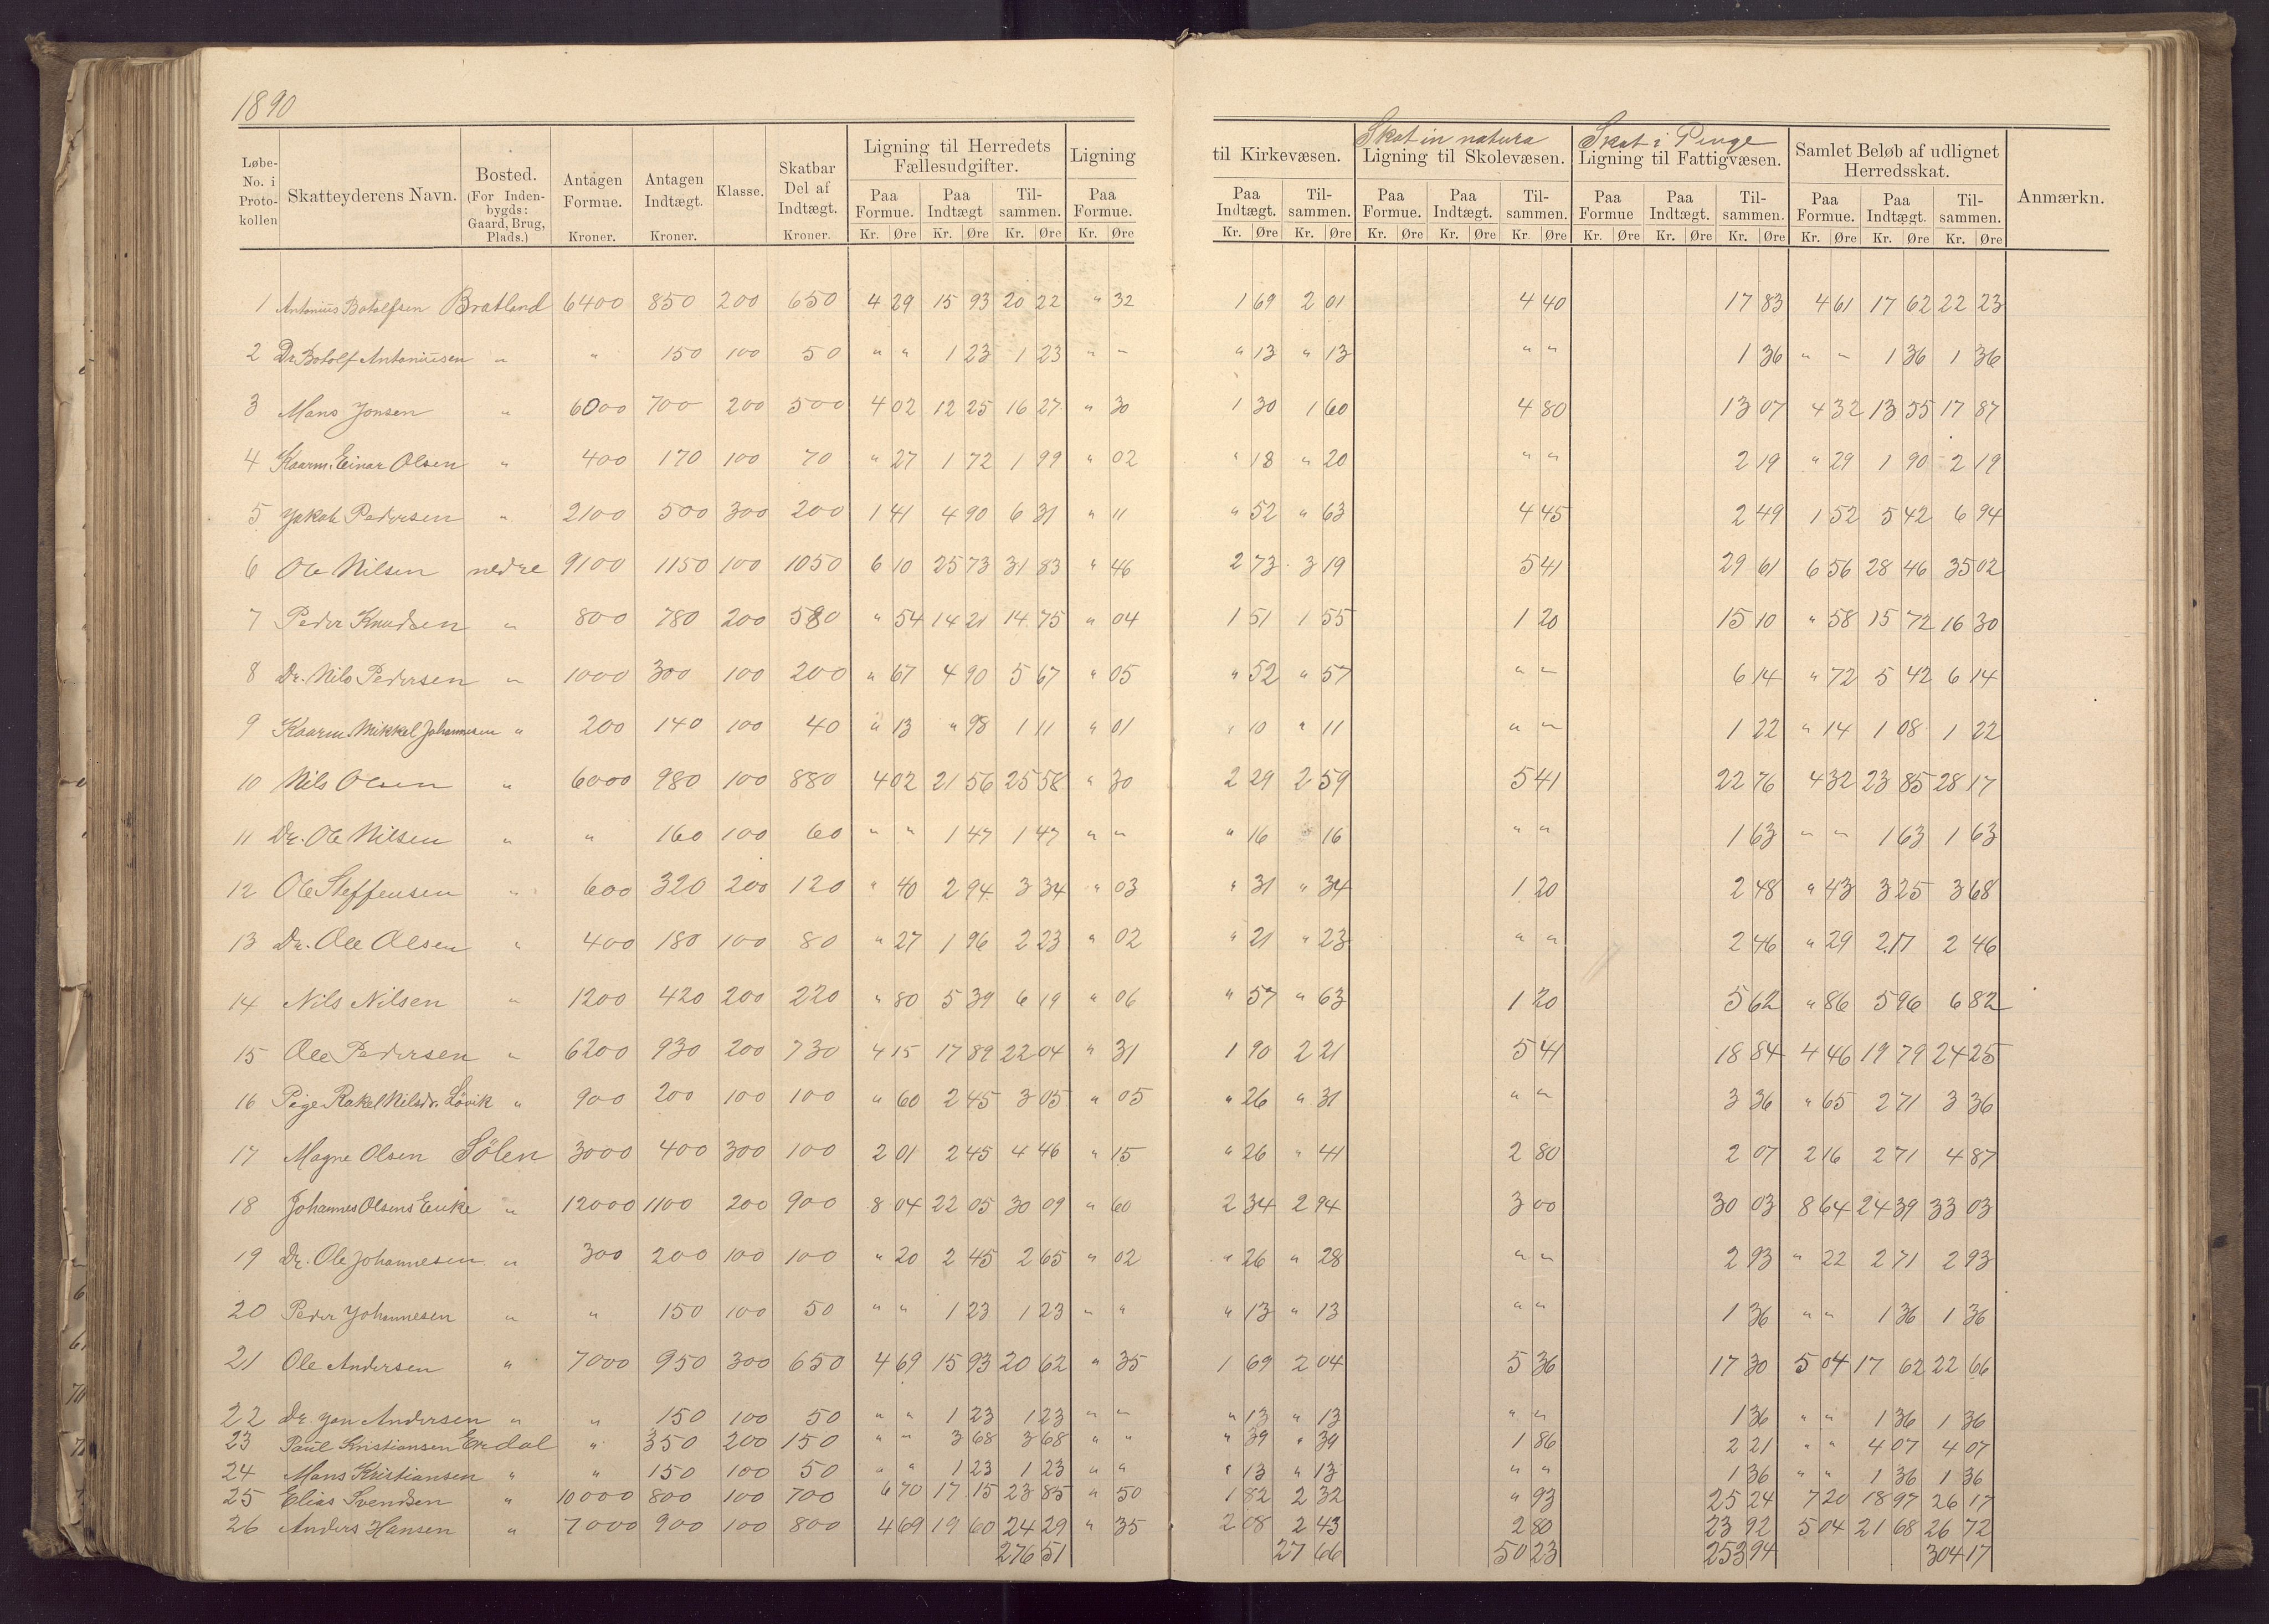 1890
Løbe- No. i Proto- kollen | Skatteyderens Navn. | Bosted. (For Inden- bygds: Gaard, Brug, Plads.) | Antagen Formue. Kroner. | Antagen Indtægt. Kroner. | Klasse. | Skatbar Del af Indtægt. Kroner. | Ligning til Herredets Fællesudgifter. Paa Formue. Kr. Øre | Paa Indtægt Kr. Øre | Til- sammen. Kr. Øre | Ligning Paa Formue. Kr. Øre | til Kirkevæsen. Paa Indtægt. Kr. Øre | Til- sammen. Kr. Øre | Skat in natura Ligning til Skolevæsen. Paa Formue. Kr. Øre | Paa Indtægt. Kr. Øre | Til- sammen. Kr. Øre | Skat i Penge Ligning til Fattigvæsen. Paa Formue Kr. Øre | Paa Indtægt. Kr. Øre | Til- sammen. Kr. Øre | Samlet Beløb af udlignet Herredsskat. Paa Formue. Kr. Øre | Paa Indtægt. Kr. Øre | Til- sammen. Kr. Øre | Anmærkn.
1 Antonius Botolfsen Bratland 6400 850 200 650 4 29 15 93 20 22 " 32 1 69 2 01 4 40 17 83 4 61 17 62 22 23
2 Dr. Botolf Antoniussen " " 150 100 50 " " 1 23 1 23 " " " 13 " 13 " " 1 36 " " 1 36 1 36
3 Mons Jonsen " 6000 700 200 500 4 02 12 25 16 27 " 30 1 30 1 60 4 80 13 07 4 32 13 55 17 87
4 Kaarm. Einar Olsen " 400 170 100 70 " 27 1 72 1 99 " 02 " 18 " 20 " " 2 19 " 29 1 90 2 19
5 Jakob Pedersen " 2100 500 300 200 1 41 4 90 6 31 " 11 " 52 " 63 4 45 2 49 1 52 5 42 6 94
6 Ole Nilsen nedre 9100 1150 100 1050 6 10 25 73 31 83 " 46 2 73 3 19 5 41 29 61 6 56 28 46 35 02
7 Peder Knudsen " 800 780 200 580 " 54 14 21 14 75 " 04 1 51 1 55 1 20 15 10 " 58 15 72 16 30
8 Dr. Nils Pedersen " 1000 300 100 200 " 67 4 90 5 67 " 05 " 52 " 57 " " 6 14 " 72 5 42 6 14
9 Kaarm. Mikkel Johannesen " 200 140 100 40 " 13 " 98 1 11 " 01 " 10 " 11 " " 1 22 " 14 1 08 1 22
10 Nils Olsen " 6000 980 100 880 4 02 21 56 25 58 " 30 2 29 2 59 5 41 22 76 4 32 23 85 28 17
11 Dr. Ole Nilsen " " 160 100 60 " " 1 47 1 47 " " " 16 " 16 " " 1 63 " " 1 63 1 63
12 Ole Steffensen " 600 320 200 120 " 40 2 94 3 34 " 03 " 31 " 34 1 20 2 48 " 43 3 25 3 68
13 Dr. Ole Olsen " 400 180 100 80 " 27 1 96 2 23 " 02 " 21 " 23 " " 2 46 " 29 2 17 2 46
14 Nils Nilsen " 1200 420 200 220 " 80 5 39 6 19 " 06 " 57 " 63 1 20 5 62 " 86 5 96 6 82
15 Ole Pedersen " 6200 930 200 730 4 15 17 89 22 04 " 31 1 90 2 21 5 41 18 84 4 46 19 79 24 25
16 Pige Rakel Nilsdr. Løvik " 900 200 100 100 " 60 2 45 3 05 " 05 " 26 " 31 " " 3 36 " 65 2 71 3 36
17 Magne Olsen Sölen 3000 400 300 100 2 01 2 45 4 46 " 15 " 26 " 41 2 80 2 07 2 16 2 71 4 87
18 Johannes Olsens Enke " 12000 1100 200 900 8 04 22 05 30 09 " 60 2 34 2 94 3 00 30 03 8 64 24 39 33 03
19 Dr. Ole Johannesen " 300 200 100 100 " 20 2 45 2 65 " 02 " 26 " 28 " " 2 93 " 22 2 71 2 93
20 Peder Johannesen " " 150 100 50 " " 1 23 1 23 " " " 13 " 13 " " 1 36 " " 1 36 1 36
21 Ole Andersen " 7000 950 300 650 4 69 15 93 20 62 " 35 1 69 2 04 5 36 17 30 5 04 17 62 22 66
22 Dr. Jon Andersen " " 150 100 50 " " 1 23 1 23 " " " 13 " 13 " " 1 36 " " 1 36 1 36
23 Paul Kristiansen Eredal " 350 200 150 " " 3 68 3 68 " " " 39 " 39 1 86 2 21 " " 4 07 4 07
24 Mons Kristiansen " " 150 100 50 " " 1 23 1 23 " " " 13 " 13 " " 1 36 " " 1 36 1 36
25 Elias Svendsen " 10000 800 100 700 6 70 17 15 23 85 " 50 1 82 2 32 " 93 25 24 7 20 18 97 26 17
26 Anders Hansen " 7000 900 100 800 4 69 19 60 24 29 " 35 2 08 2 43 2 80 23 92 5 04 21 68 26 72
276 51 27 66 50 23 253 94 304 17